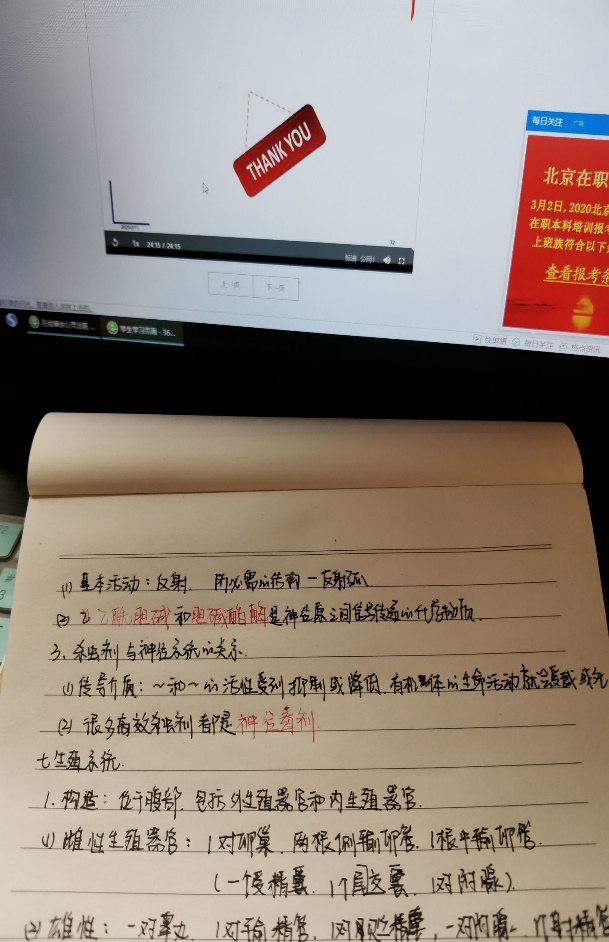 THANK YOU
每日关注 广告
北京在职
3月2日,2020北京
在职本科培训报考
上班族符合以下
查看报考条
1x 24:15 / 24:15
标清 公网1
上一页 下一页
学生学习页面 - 36...
快剪辑 每日关注 热点资讯
(1) 基本活动：反射. 所必需的结构－反射弧
(2) 乙酰胆碱和胆碱酯酶是神经原之间信号传递的化学物质.
3. 杀虫剂与神经系统的关系.
(1) 传导介质：～和～的活性受到抑制或降低. 有机体的生命活动就会受
(2) 很多高效杀虫剂都是神经毒剂.
七生殖系统.
1. 构造：位于腹部. 包括外生殖器官和内生殖器官.
(1) 雌性生殖器官：1对卵巢. 两根侧输卵管. 1根中输卵管.
(一个受精囊. 1个尾交囊. 1对附腺).
(2) 雄性：一对睾丸. 1对输精管. 1对贮精囊. 一对附腺. 1个射精管